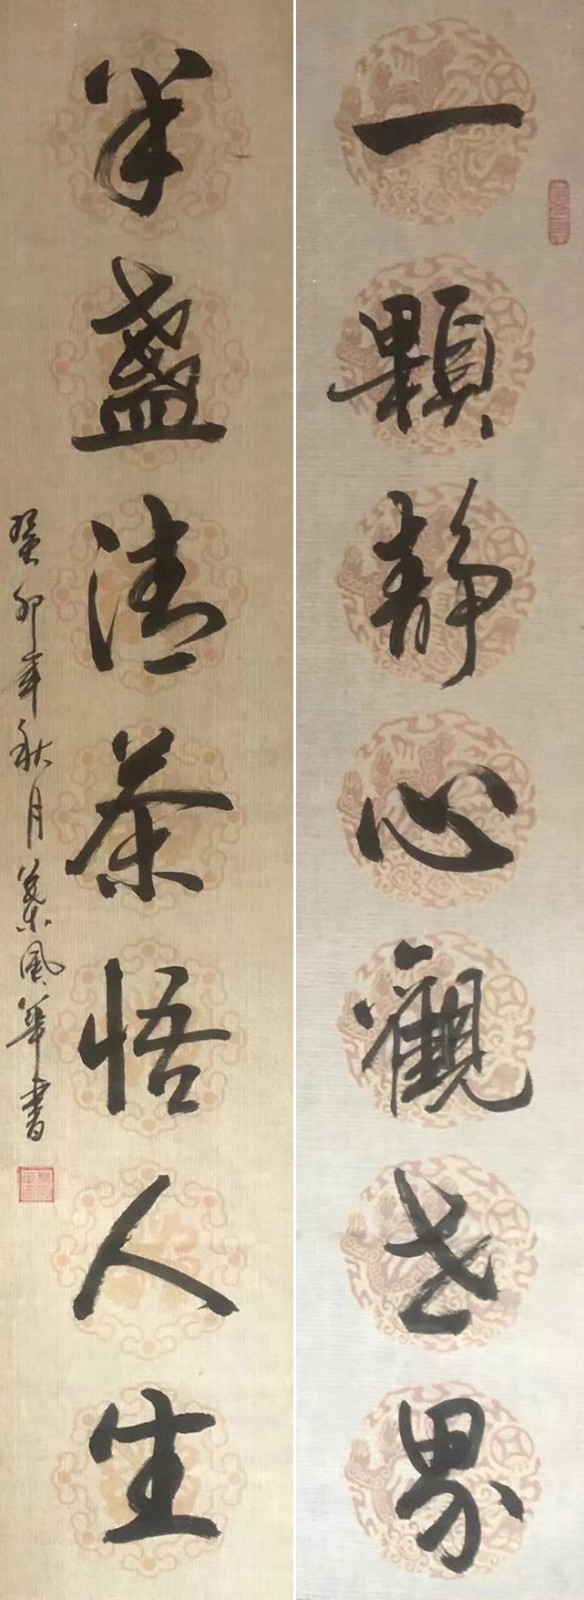 一顆静心觀世界
半盞清茶悟人生
癸卯年秋月葉風華書